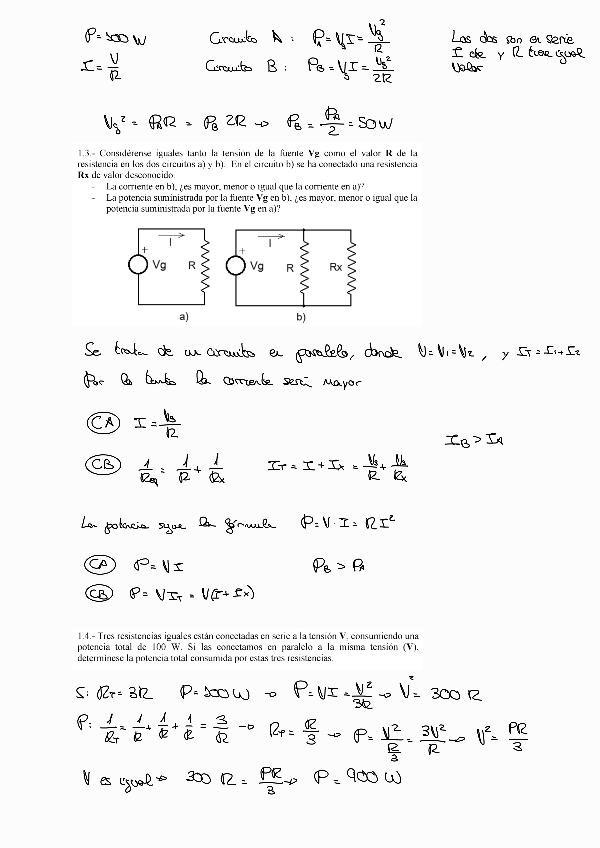 P = 100 W   Circuito A : P_A = V_g I = V_g²/R   Las dos son en serie
I = V/R   Circuito B : P_B = V_g I = V_g²/2R   I de y R tiene igual
valor
V_g² = P_A R = P_B 2R → P_B = P_A/2 = 50W
1.3.- Considérense iguales tanto la tensión de la fuente Vg como el valor R de la
resistencia en los dos circuitos a) y b). En el circuito b) se ha conectado una resistencia
Rx de valor desconocido.
- La corriente en b), ¿es mayor, menor o igual que la corriente en a)?
- La potencia suministrada por la fuente Vg en b), ¿es mayor, menor o igual que la
potencia suministrada por la fuente Vg en a)?
I   I
+   +
Vg   R   Vg   R   Rx
a)   b)
Se trata de un circuito en paralelo, donde V = V₁ = V₂ , y I_T = I₁ + I₂
Por lo tanto la corriente será mayor
CA   I = V_g/R
I_B > I_A
CB   1/R_eq = 1/R + 1/R_x   I_T = I + I_x = V_g/R + V_g/R_x
La potencia sigue la fórmula   P = V · I = R I²
CA   P = V I   P_B > P_A
CB   P = V I_T = V(I + I_x)
1.4.- Tres resistencias iguales están conectadas en serie a la tensión V, consumiendo una
potencia total de 100 W. Si las conectamos en paralelo a la misma tensión (V),
determínese la potencia total consumida por estas tres resistencias.
S: R_T = 3R   P = 100 W → P = VI = V²/3R → V² = 300 R
P: 1/R_T = 1/R + 1/R + 1/R = 3/R → R_T = R/3 → P = V²/(R/3) = 3V²/R → V² = PR/3
V es igual → 300 R = PR/3 → P = 900 W